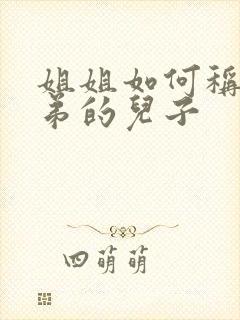 姐姐如何稱
弟的兒子
四萌萌